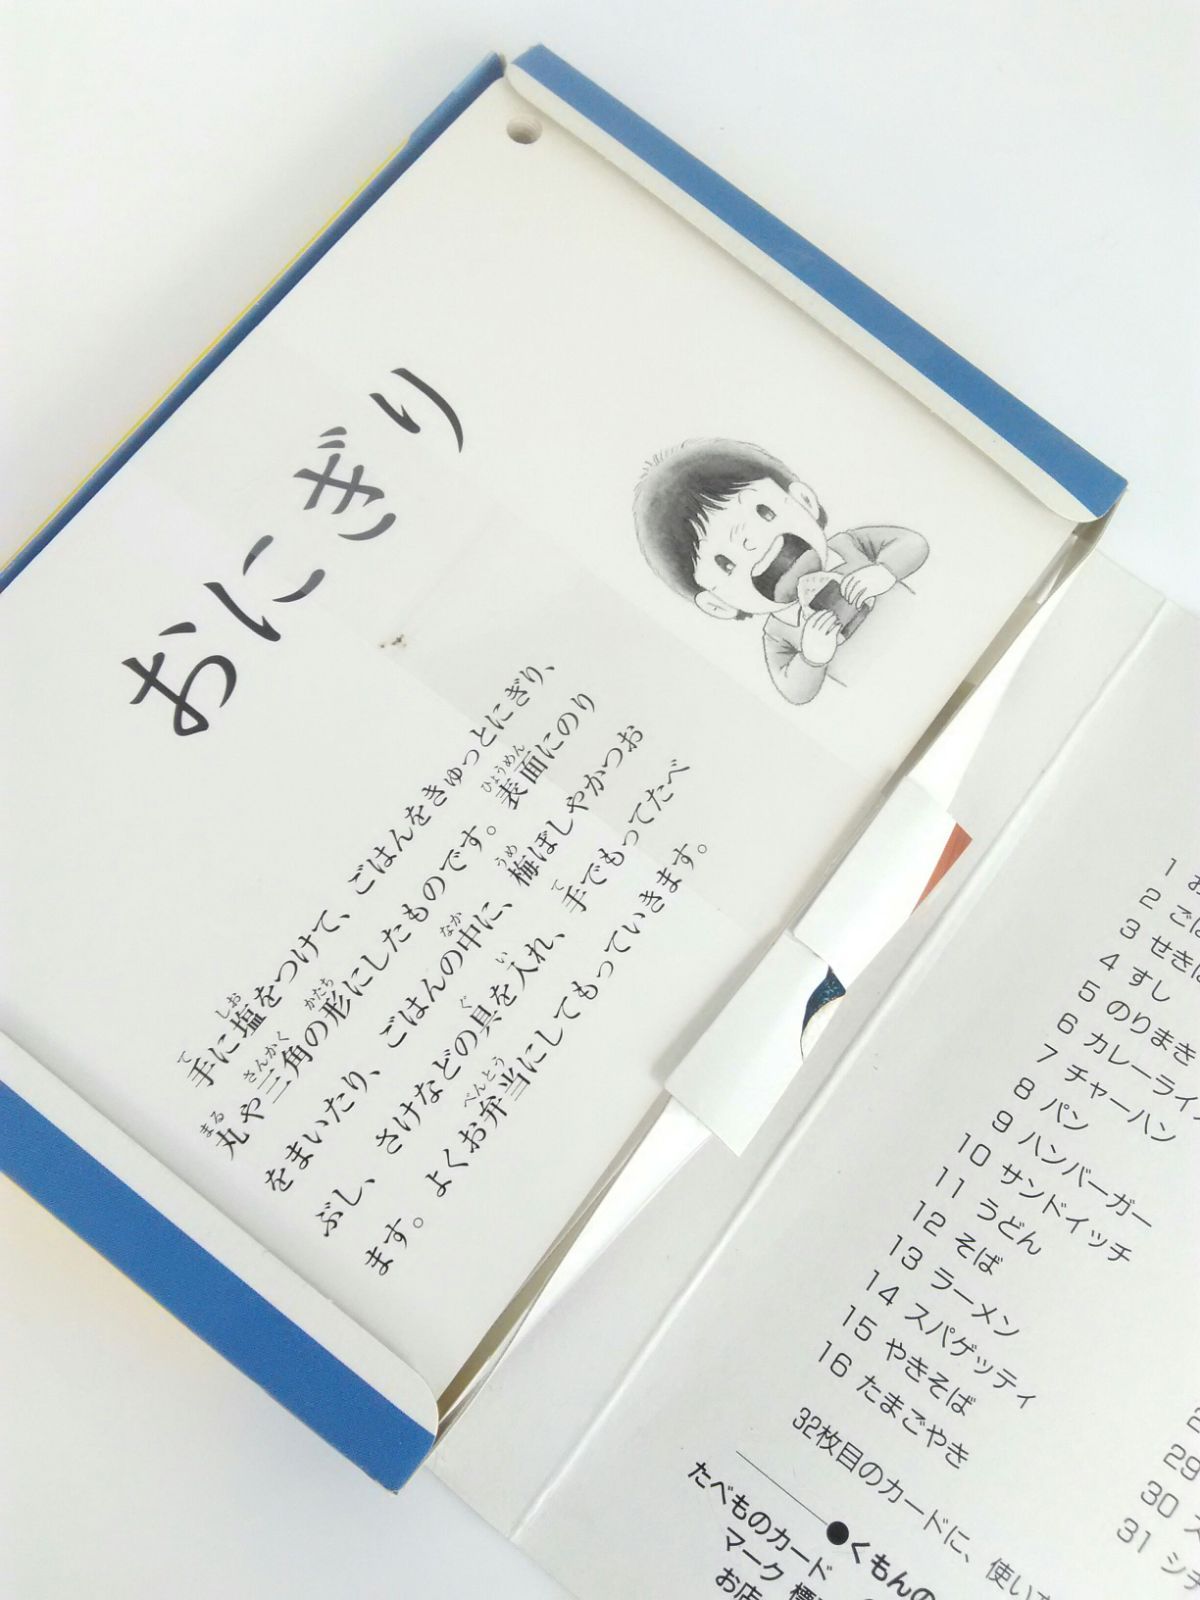 おにぎり
手に塩をつけて、ごはんをきゅっとにぎり、
丸や三角の形にしたものです。表面にのり
をまいたり、ごはんの中に、梅ぼしやかつお
ぶし、さけなどの具を入れ、手でもってたべ
ます。よくお弁当にしてもっていきます。
1 お
2 ごは
3 せきは
4 すし
5 のりまき
6 カレーライ
7 チャーハン
8 パン
9 ハンバーガー
10 サンドイッチ
11 うどん
12 そば
13 ラーメン
14 スパゲッティ
15 やきそば
16 たまごやき
29
30 ス
31 シチ
32枚目のカードに、使い方
●くもんの
たべものカード
マーク 標
お店